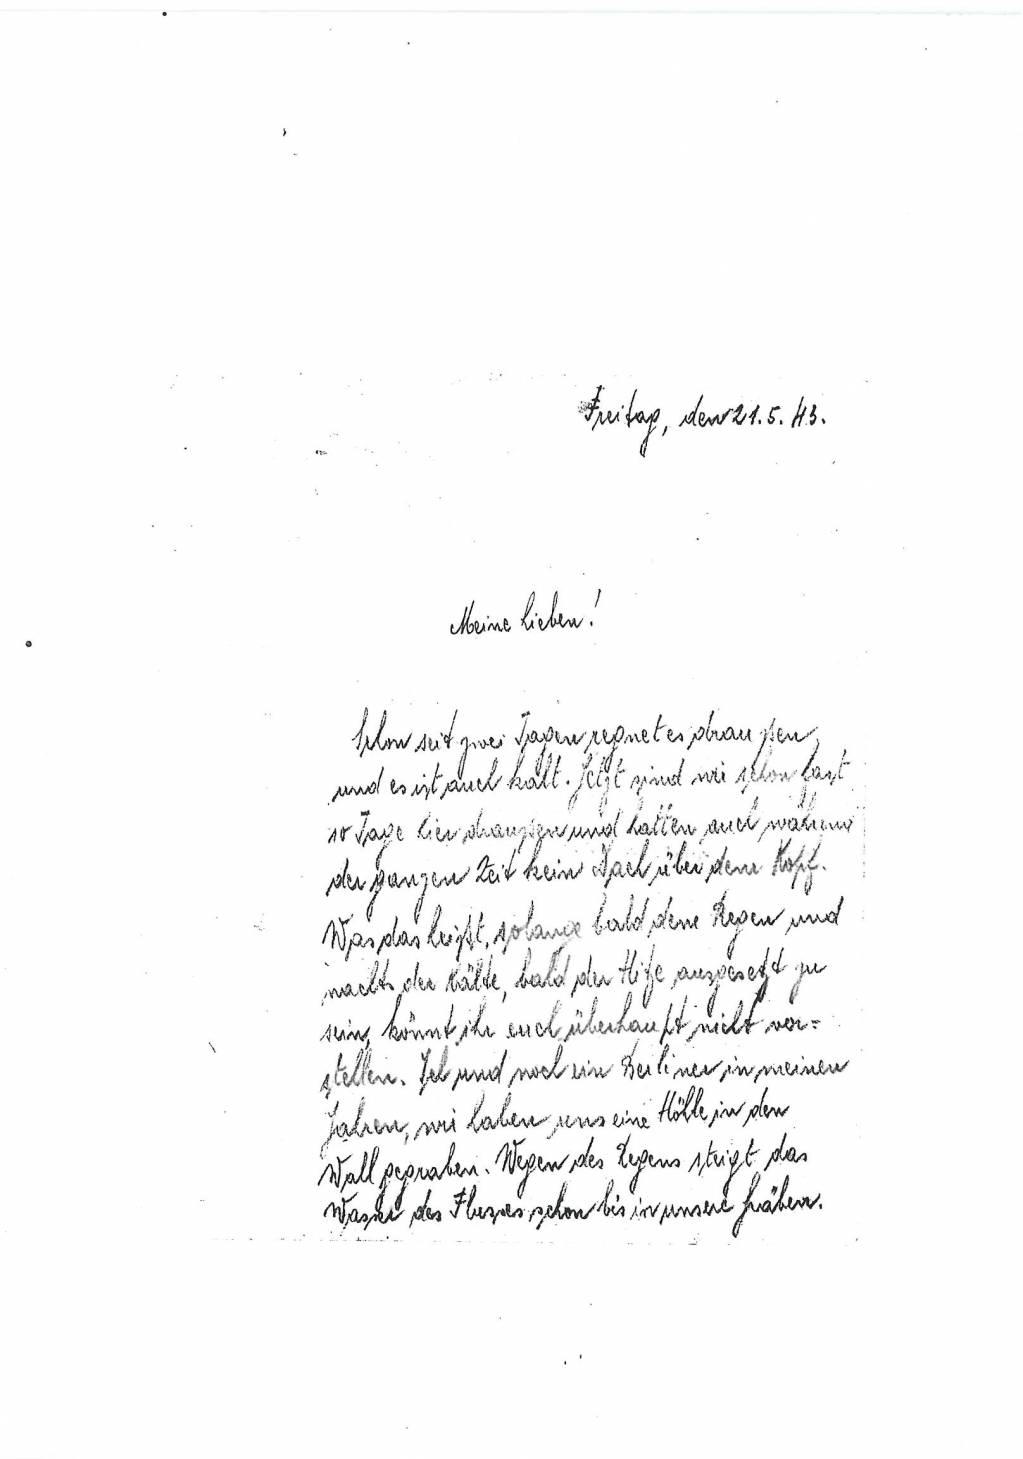 Freitag, den 21.5.43.
Meine Lieben!
Schon seit zwei Tagen regnet es draußen,
und es ist auch kalt. Jetzt sind wir schon fast
10 Tage hier draußen und hatten auch während
der ganzen Zeit kein Dach über dem Kopf.
Was das heißt, solange bald dem Regen und
nachts der Kälte, bald der Hitze ausgesetzt zu
sein, könnt ihr euch überhaupt nicht vor=
stellen. Ich und noch ein Berliner in meinen
Jahren, wir haben uns eine Höhle in den
Wall gegraben. Wegen des Regens steigt das
Wasser des Flusses schon bis in unsere Gräben.